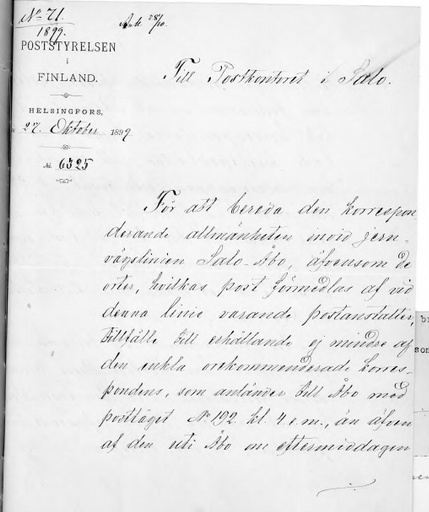 No 71.
1899.
Ank 28/10.
POSTSTYRELSEN
i
FINLAND.
Till Postkontoret i Salo.
HELSINGFORS,
27 Oktober 1899.
No 6525
För att bereda den korrespon
derande allmänheten invid jern-
vägslinien Salo-Åbo, äfvensom de
orter, hvilkas post förmedlas af vid
denna linie varande postanstalter,
tillfälle till erhållande ej mindre af
den enkla orekommenderade korres-
pondens, som anländer till Åbo med
posttåget No 192 kl. 4 e.m., än äfven
af den uti Åbo om eftermiddagen